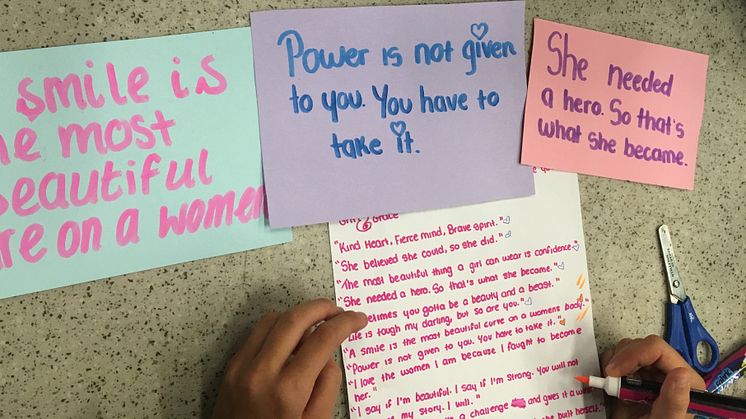 smile is
most
beautiful
on a women
Power is not given
to you. You have to
take it.
She needed
a hero. So that's
what she became.
Grace
"Kind Heart, Fierce mind, Brave Spirit."
"She believed she could, so she did."
"The most beautiful thing a girl can wear is confidence."
"She needed a hero. So that's what she became."
you gotta be a beauty and a beast."
Life is tough my darling, but so are you."
"A smile is the most beautiful curve on a womens body."
"Power is not given to you. You have to take it."
"I love the women I am because I fought to become
her."
"I say if I'm beautiful. I say if I'm strong. You will not
my story. I will."
a challenge and gives it a
built herself."